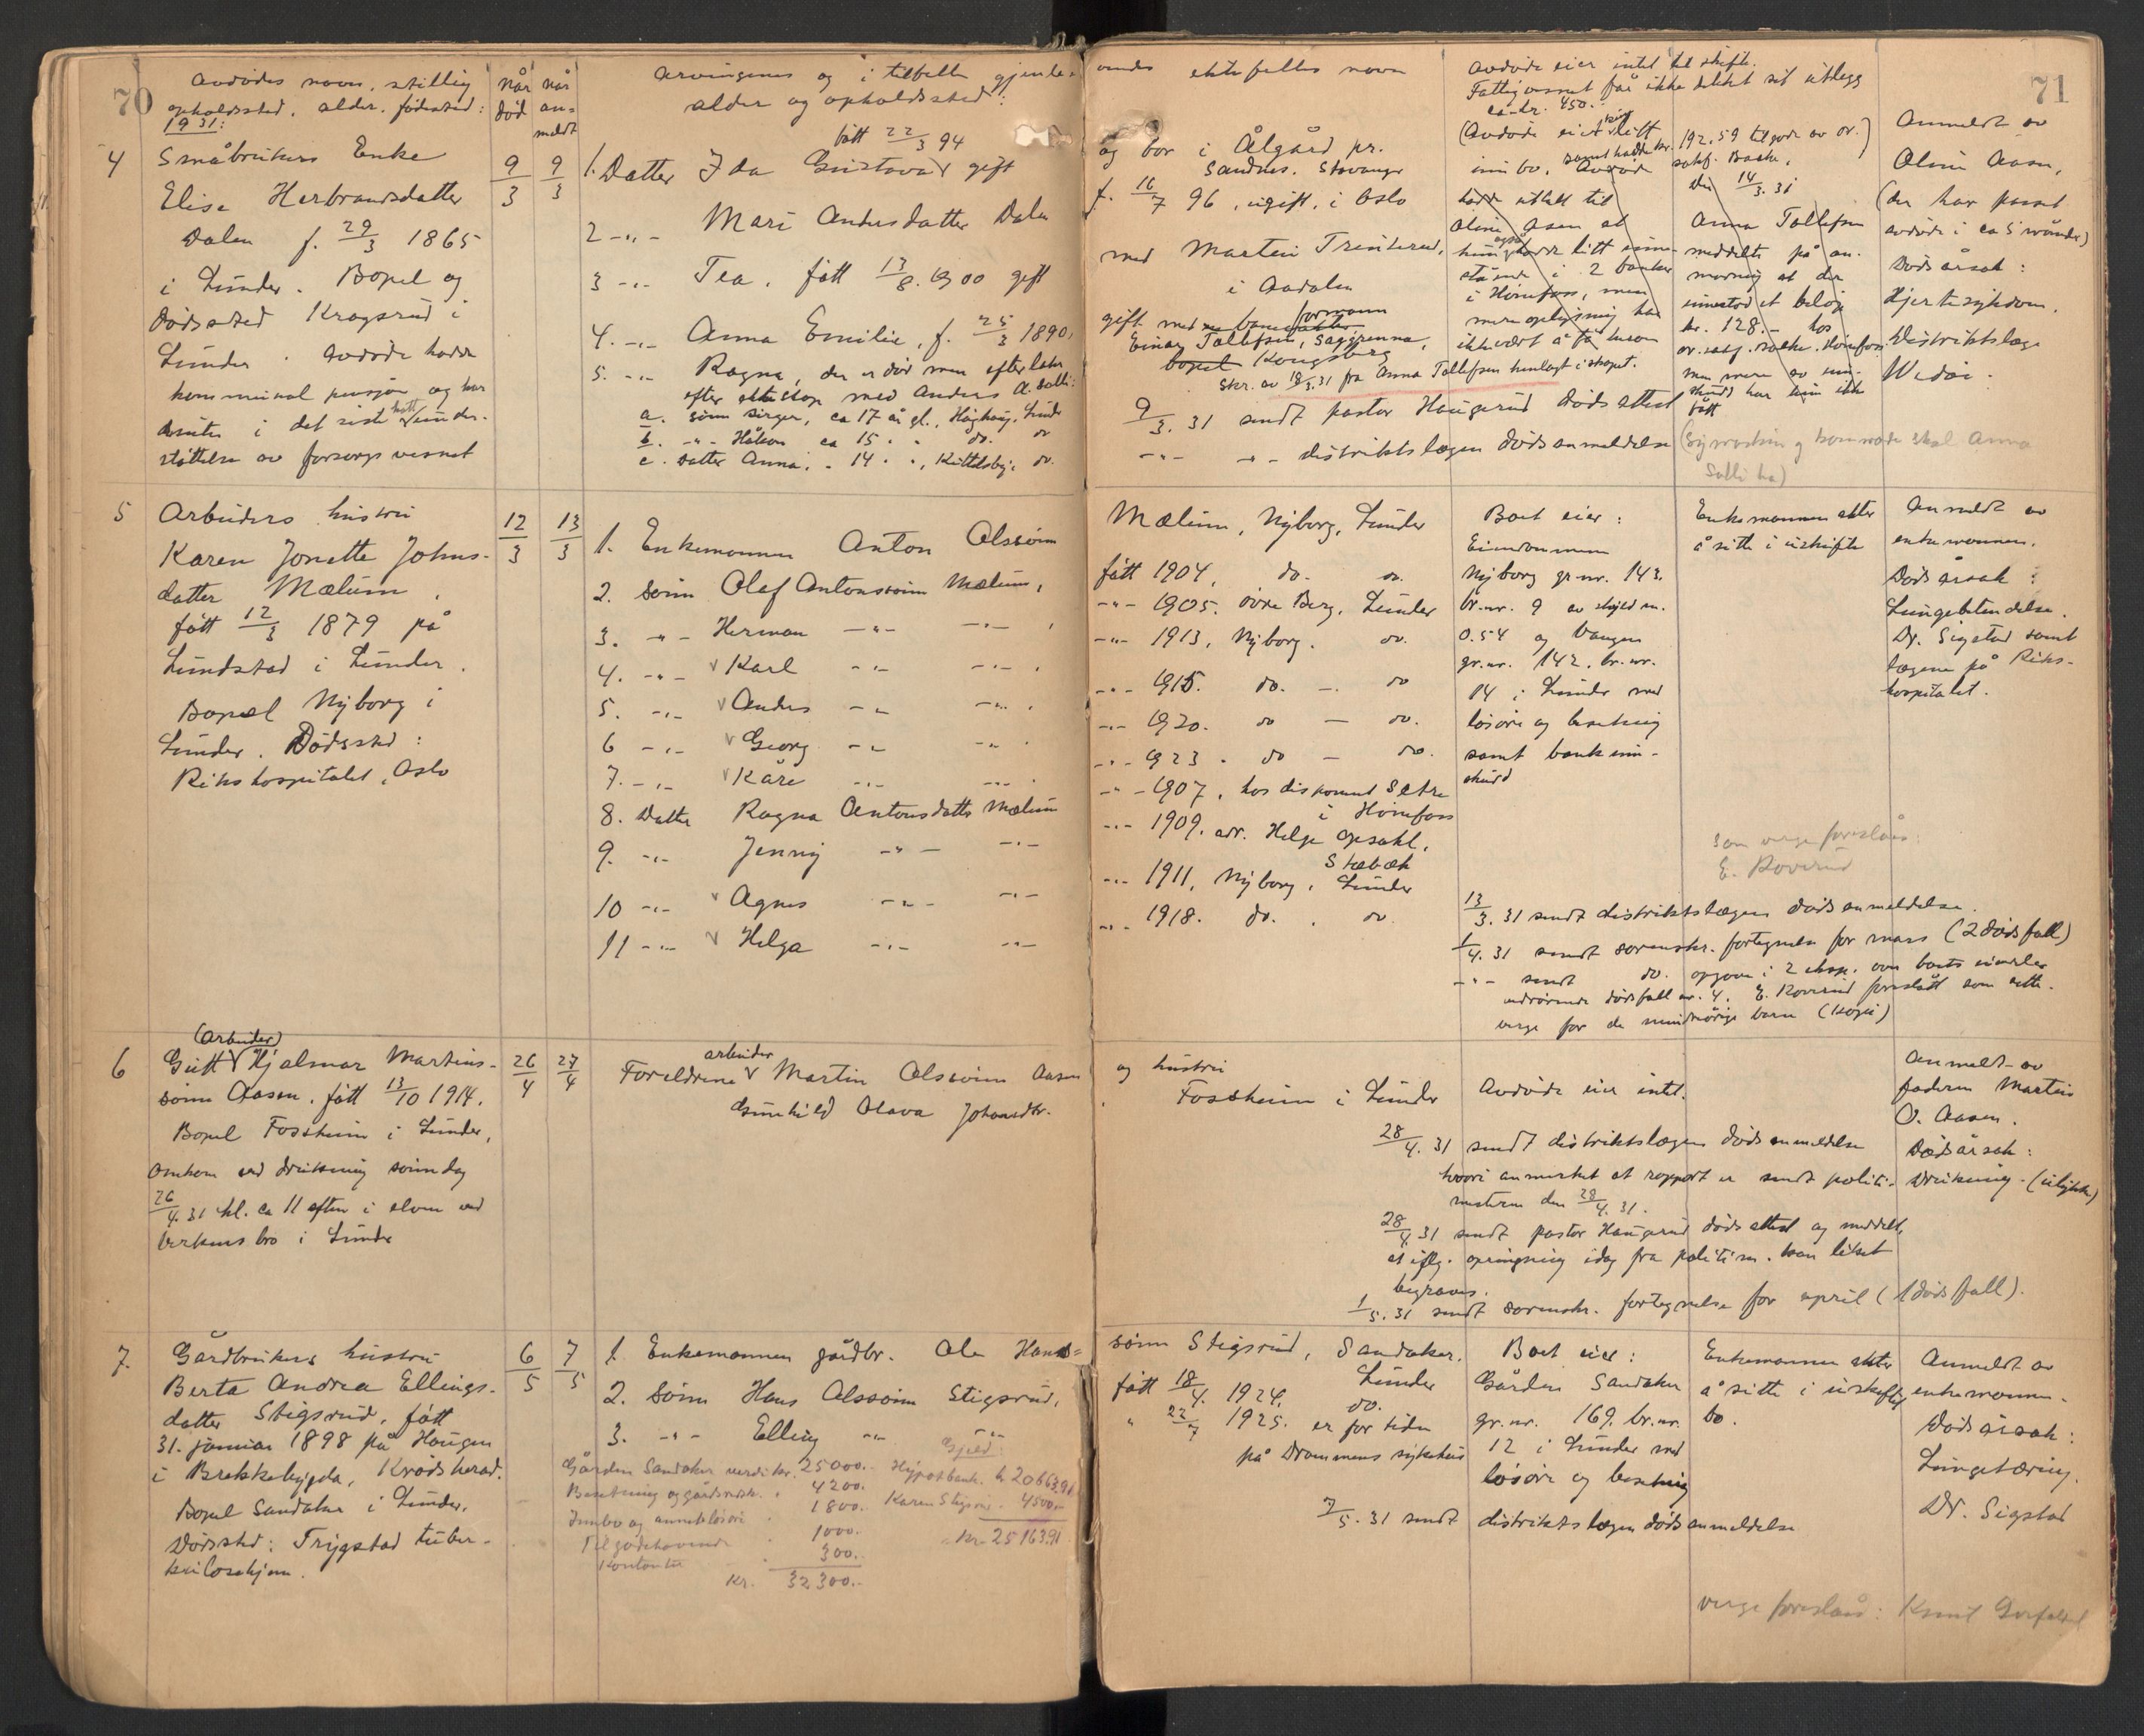 70
Avdødes navn, stilling
opholdssted, alder, fødested:
1931:
når død
når anmeldt
Arvingenes og i tilfelle gjenle-
alder og opholdssted:
4
Småbrukers Enke
Elise Herbrandsdatter
Dalen f. 29/3 1865
i Lunder. Bopel og
dødssted Kragsrud i
Lunder. Avdøde hadde
kommunal pensjon og har
i det siste hatt under-
støttelse av forsorgsvesnet
9/3
9/3
født 22/3 94
1. Datter Ida Gustava gift
2 -"- Mari Andersdatter Dalen
3 -"- Tea, født 13/8 1900 gift
4. -"- Anna Emilie, f. 25/3 1890,
5. -"- Ragna, der er død men efterlater
efter ekteskap med Anders A. Solli:
a. sønn Birger, ca 17 år gl., Haghaug, Lunder
b. -"- Håkon ca 15 " " do. do
c. Datter Anna, " 14 " ", Kittelsby, do.
5
Arbeiders hustru
Karen Jonette Johns-
datter Mælum,
født 12/3 1879 på
Lundstad i Lunder.
Bopæl Nyborg i
Lunder. Dødssted:
Rikshospitalet, Oslo
12/3
13/3
1. Enkemannen Anton Olssønn
2. Sønn Olaf Antonssønn Mælum,
3. -"- Herman -"- -"-,
4. -"- v Karl -"- -"-,
5. -"- v Anders -"- -"-,
6 -"- v Georg -"- -"-
7. -"- v Kåre -"- -"-
8. Datter Ragna Antonsdatter Mælum
9. -"- Jenny -"- -"-
10 -"- v Agnes -"- -"-
11 -"- v Helga -"- -"-
6
(Arbeider)
Gutt v Hjalmar Martins-
sønn Aasen, født 13/10 1914.
Bopel Fossheim i Lunder,
omkom ved drukning sønndag
26/4.31 kl. ca 11 efterm i elven ved
Verkens bro i Lunder
26/4
27/4
arbeider
Foreldrene v Martin Olssønn Aasen
Gunhild Olava Johansdtr.
7.
Gårdbrukers hustru
Berta Andrea Ellings-
datter Stigsrud, født
31. januar 1898 på Haugen
i Brekkebygda, Krødsherad.
Bopel Sandaker i Lunder.
Dødssted: Trygstad tuber-
kulosehjem.
6/5
7/5
1. Enkemannen gårdbr. Ole Hans-
2. Sønn Hans Olssønn Stigsrud,
3. -"- Elling -"- -"-
Gjeld:
Gården Sandaker verdi kr. 25000.- Hypotekbank. kr 20663.91
Besetning og gårdsredsk. " 4200. Karen Stigsrud - 4500.-
Innbo og annet løsøre " 1800.
Tilgodehavende " 1000. Kr. 25163.91
Kontanter " 300.-
Kr. 32300.-
71
vende ektefelles navn
Avdøde eier intet til skifte.
Fattigvesnet får ikke dekket sit utlegg
ca kr. 450.-
og bor i Ålgård pr.
Sandnes. Stavanger
f. 16/7 96, ugift, i Oslo
med Martin Trinterud,
i Aadalen
formann
gift med
Einar Tollefsen, Saggrenna,
bopel Kongsberg
Skr. av 18/3.31 fra Anna Tollefsen henlagt i skapet.
9/3.31 sendt pastor Haugerud dødsattest
-"- -"- distriktslægen dødsanmeldelse
(Avdøde eier litt
inn bo, Avdøde
hadde uttalt til
Oline Asen at
hun også hadde litt inne-
stående i 2 banker
i Hønefoss, men
mere oplysning har
ikke vært å få herom
samt hadde kr. 192,59 tilgode av or.)
Den 14/3.31
Anna Tollefsen
meddelte på an-
modning at der
innestod et beløp
kr. 128.- hos
men mere av inn-
skudd har hun ikke
fått
(Symaskin og kommode skal Anna
Solli ha)
Anmeldt av
Oline Aasen,
(der har passet
avdøde i ca 5 måneder)
Dødsårsak:
Hjertesykdom.
Distriktslæge
Mælum, Nyborg, Lunder
født 1904, do. do.
-"- 1905. Øvre Berg, Lunder
-"- 1913, Nyborg. do.
-"- 1915. do. - do
-"- 1920. do - do.
-"- 1923. do - do.
-"- 1907, hos disponent Sætre
i Hønefoss
-"- 1909. adr. Helge Opsahl,
Stabæk
-"- 1911, Nyborg, Lunder
-"- 1918. do. . do
Boet eier:
Eiendommen
Nyborg gr.nr. 143.
br.nr. 9 av skyld m.
0.54 og haugen
gr.nr. 142. br.nr.
14 i Lunder med
løsøre og besetning
samt bankinn-
skudd
Enkemannen akter
å sitte i uskifte
Anmeldt av
enkemannen.
Dødsårsak:
Lungebetendelse.
Dr. Sigstad samt
lægene på Riks-
hospitalet.
som verge foreslåes:
E. Roverud
13/3.31 sendt distriktslægen dødsanmeldelse.
1/4.31 sendt sorenskr. fortegnelse for mars (2 dødsfall)
-"- sendt do. opgave i 2 eksp. over boets eiendeler
vedrørende dødsfall nr. 4. E. Roverud foreslått som sette-
verge for de mindreårige barn (kopi)
og hustru
Fossheim i Lunder
Avdøde eier intet.
Anmeldt av
faderen Martin
O. Aasen.
Dødsårsak:
Drukning - (ulykke)
28/4.31 sendt distriktslægen dødsanmeldelse
hvori anmerket at rapport er sendt politi-
mesteren den 28/4.31.
28/4.31 sendt pastor Haugerud dødsattest og meddelt,
at iflg. opringning idag fra politim. kan liket
begraves.
1/5.31 sendt sorenskr. fortegnelse for april (1 dødsfall).
sønn Stigsrud, Sandaker.
Lunder
født 18/4. 1924, do.
" 22/7 1925. er for tiden
på Drammens sykehus
Boet eier:
Gården Sandaker
gr.nr. 169. br.nr.
12 i Lunder med
løsøre og besetning
Enkemannen akter
å sitte i uskiftet
bo.
Anmeldt av
enkemannen.
Dødsårsak:
Lungetæring.
Dr. Sigstad
7/5.31 sendt distriktslægen dødsanmeldelse
verge foreslåes: Knut